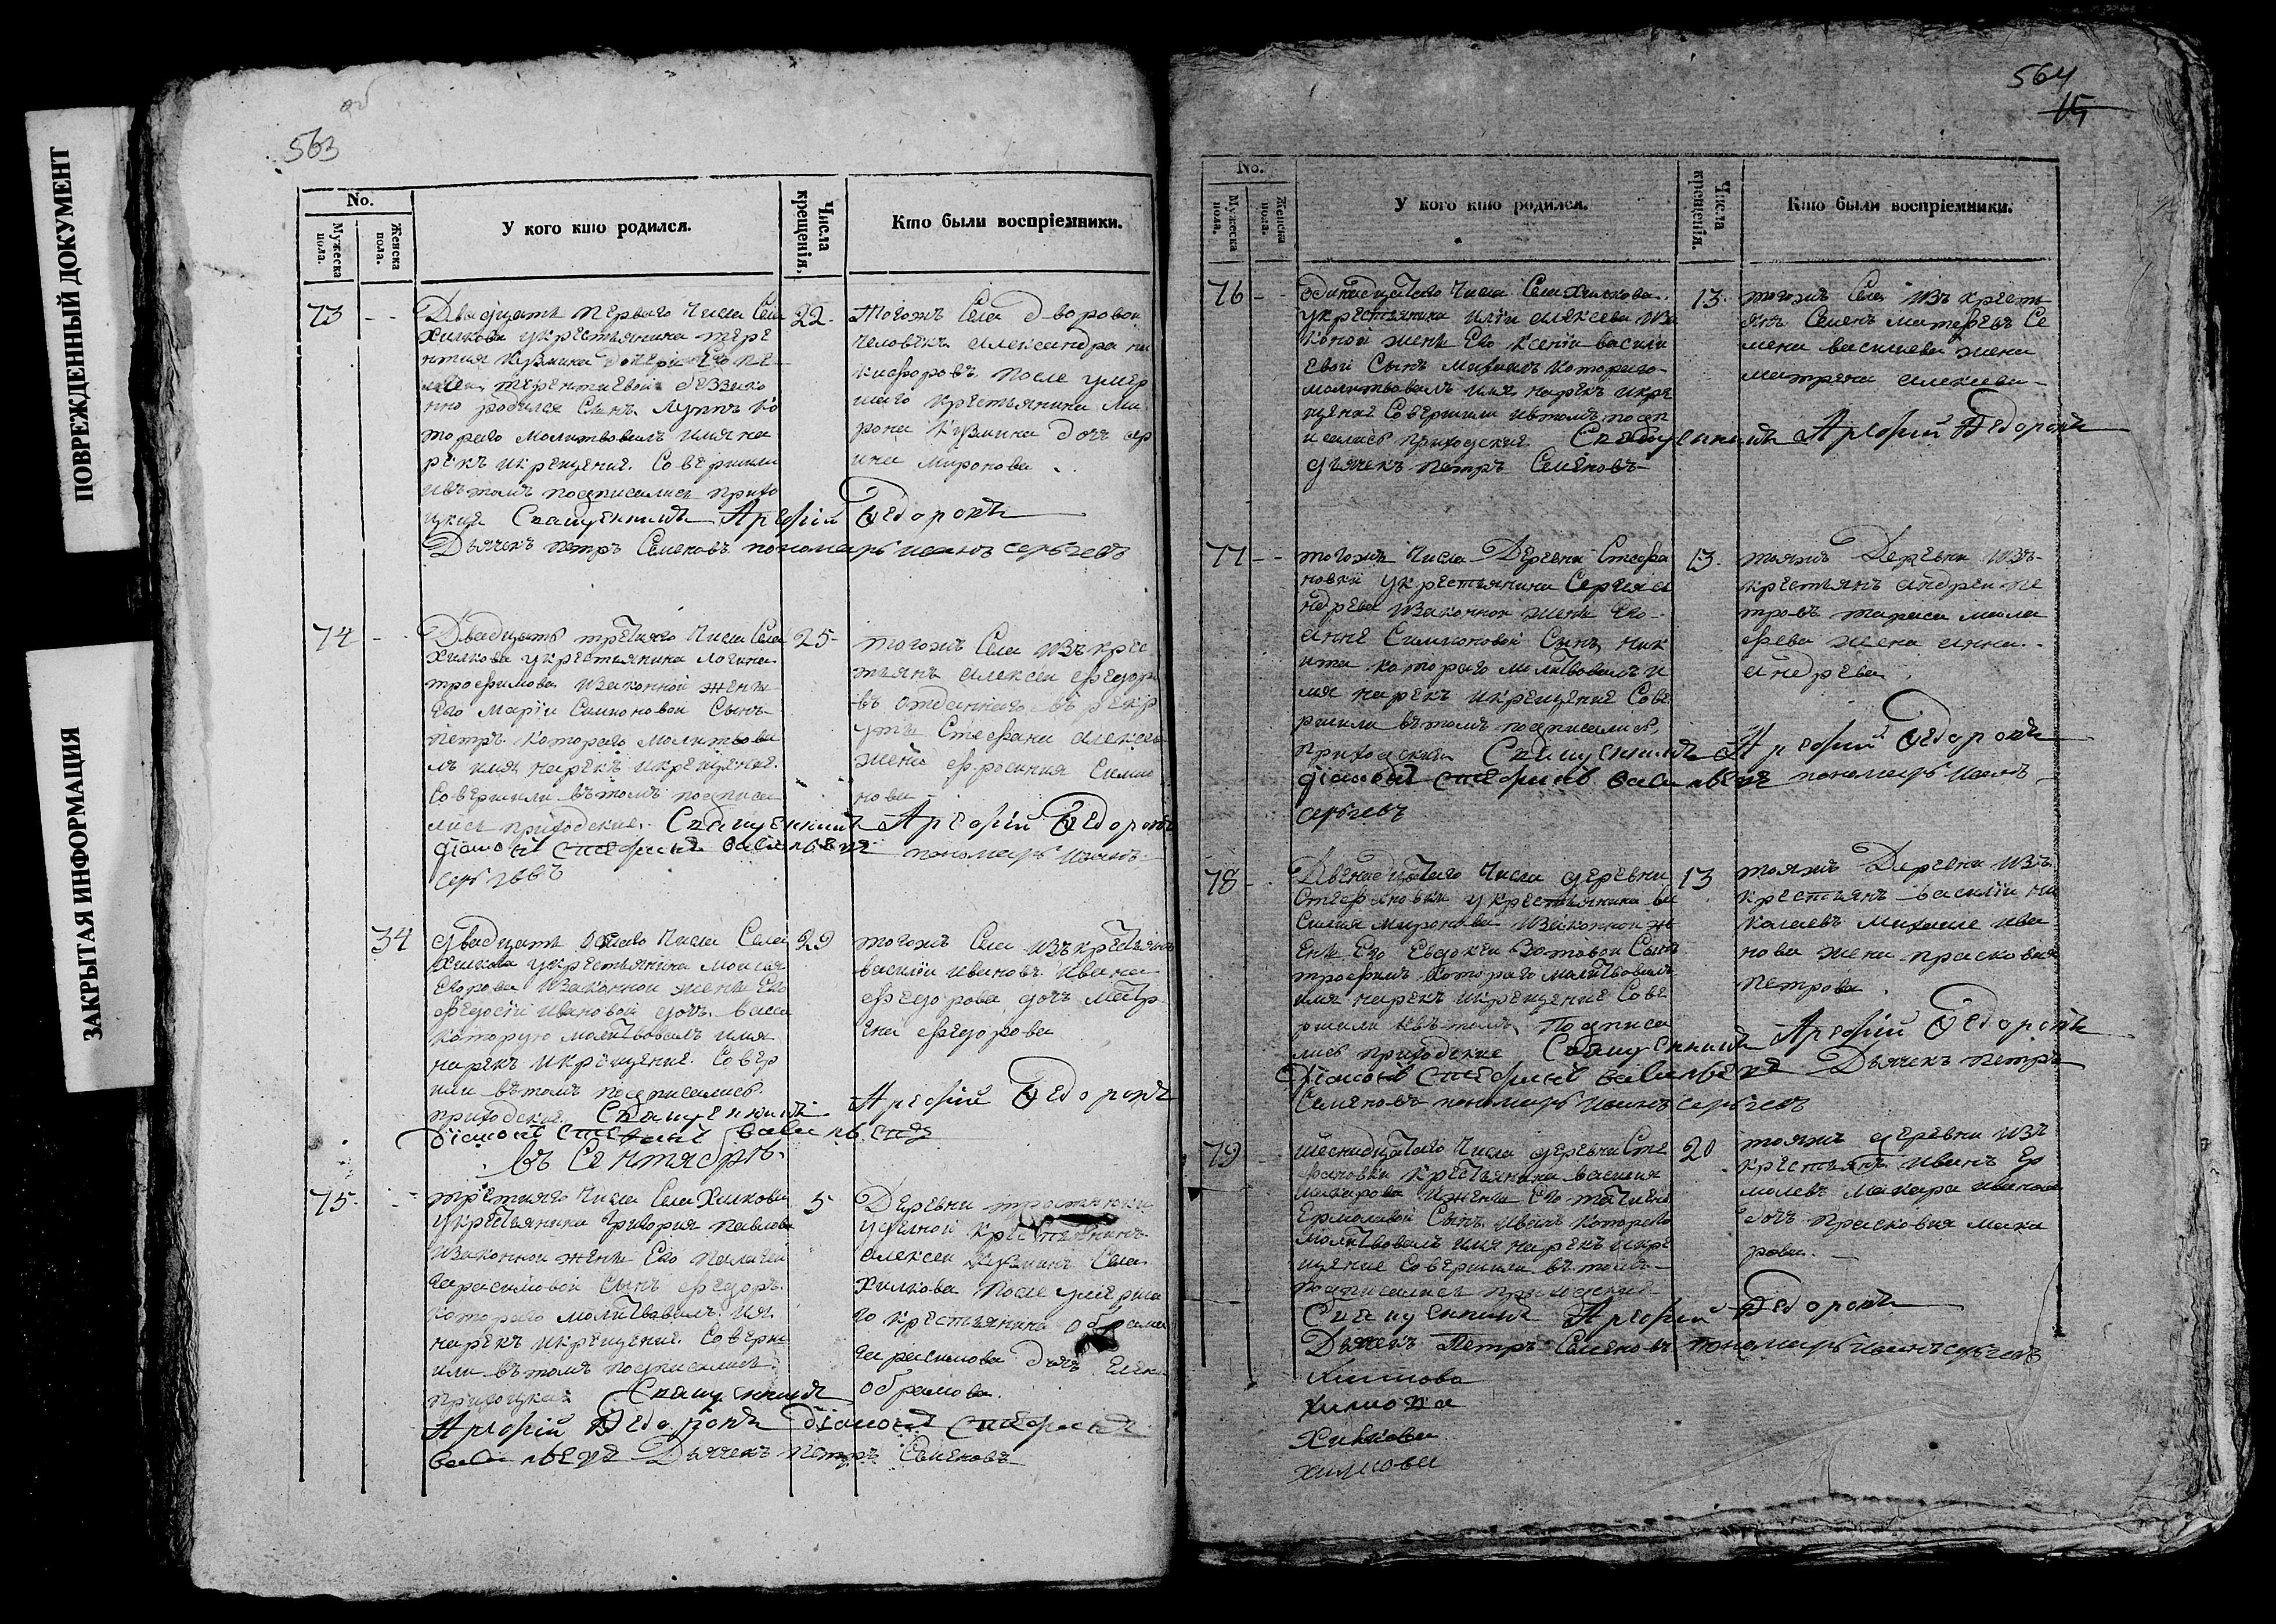 ПОВРЕЖДЕННЫЙ ДОКУМЕНТ
ЗАКРЫТАЯ ИНФОРМАЦИЯ
об
563
No.
Мужеска пола.
Женска пола.
У кого кто родился.
Числа крещенія.
Кто были воспріемники.
73
Двадцать перваго числа Села
Хилкова укрестьянина тере
нтия кузмина дочери Его пе
терентиевой беззако
нно родился Сынъ Луппъ ко
тораго молитвовалъ имя на
рекъ икрещение Совершили
ивтомъ подписались прихо
цкия Священникъ Арефий Ѳедоровъ
Дьячекъ петръ Семеновъ пономарь иванъ сергѣевъ
22
тогожъ Села дворовой
человекъ александра ни
кифоровъ после умер
шаго крестьянина Ми
рона кузмина дочь ар
ина миронова
74
Двадцать третияго числа Села
Хилкова укрестьянина логина
трофимова изаконной жены
Его марии Симоновой Сынъ
петръ которого молитвова
лъ имя нарекъ икрещение
Совершили втомъ подписа
лись приходские Священникъ Арефий Ѳедоровъ
діаконъ стефанъ васильевъ пономарь иванъ
сергѣевъ
25
тогожъ Села изъ крес
тьянъ алексей федоро
въ отданнаго въ рекр
уты Стефана алексеева
жена фросиния Симо
нова
34
Двадцать осмаго числа Села
Хилкова укрестьянина моисея
Егорова изаконной жены Его
федосии ивановой дочь васса
которую молитвовалъ имя
нарекъ икрещение Совер
или втомъ подписались
приходские Священникъ Арефий Ѳедоровъ
діаконъ стефанъ васильевъ
29
тогожъ Села изъ крестьянъ
василий ивановъ ивана
федорова дочь матр
ена федорова
въ Сентябрѣ
75
третияго числа Села Хилкова
укрестьянина григория павлова
изаконной жены Его пелагеи
герасимовой Сынъ федоръ
котораго молитвовалъ имя
нарекъ икрещение Соверш
или втомъ подписались
прихоцкия Священникъ
Арефий Ѳедоровъ діаконъ стефанъ
васильевъ Дьячекъ петръ Семеновъ
5
Деревни
крестьянинъ
алексей кузминъ Села
Хилкова после умерша
го крестьянина обрама
герасимова дочь елена
обрамова
564
15
No.
Мужеска пола.
Женска пола.
У кого кто родился.
Числа крещенія.
Кто были воспріемники.
76
Одинадцатаго числа Села Хилкова
укрестьянина илии алексеева иза
конной жены Его ксении васили
евой Сынъ михаилъ котораго
молитвовалъ имя нарекъ икре
щение Совершили ивтомъ подп
исались приходские Священникъ Арефий Ѳедоровъ
дьячекъ петръ Семеновъ
13
тогожъ Села изъ кресть
янъ Семенъ матфеевъ Се
мена василиева жена
матрена алексеева
77
тогожъ числа Деревни Стефа
новки укрестьянина Сергия а
ндреева изаконной жены Его
анны Симионовой Сынъ ник
ита котораго молитвовалъ и
мя нарекъ икрещение Сове
ршили втомъ подписались
приходския Священникъ Арефий Ѳедоровъ
діаконъ стефанъ васильевъ пономарь иванъ
сергѣевъ
13
тояжъ Деревни изъ
крестьянъ андрей пе
тровъ тараса мала
феева жена анна
андреева
78
Двенадцатаго числа деревни
Стефановки укрестьянина ва
силия миронова изаконной ж
ены Его Евдокии Зотовой Сынъ
трофимъ котораго молитвовалъ
имя нарекъ икрещение Сове
ршили ивтомъ подписа
лись приходские Священникъ Арефий Ѳедоровъ
діаконъ стефанъ васильевъ Дьячекъ петръ
Семеновъ пономарь иванъ сергѣевъ
13
тояжъ Деревни изъ
крестьянъ василий ни
колаевъ михаиле ива
нова жена прасковия
петрова
79
шеснадцатаго числа деревни Сте
фановки крестьянина василия
макарова ижены Его татияны
Ермолавой Сынъ иванъ котораго
молитвовалъ имя нарекъ икре
щение Совершили втомъ
подписались приходские
Священникъ Арефий Ѳедоровъ
Дьячекъ Петръ Семеновъ пономарь иванъ сергѣевъ
20
тояжъ деревни изъ
крестьянъ иванъ Ер
молаевъ макара иванова
дочь прасковия мака
рова
Хилкова
Хилкова
Хилкова